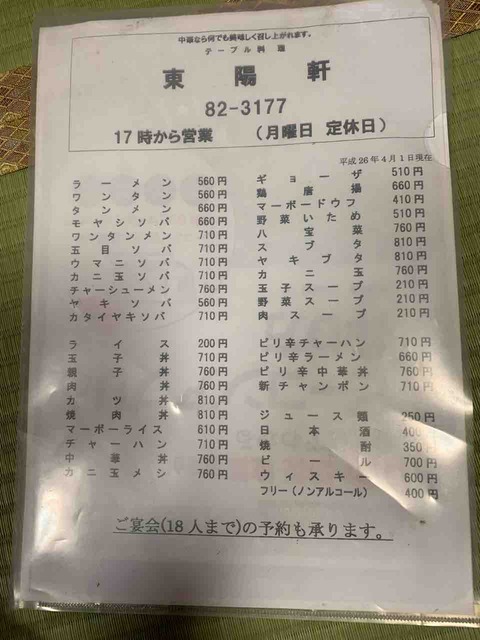 中華なら何でも美味しく召し上がれます。
テーブル料理
東陽軒
82-3177
17時から営業 (月曜日 定休日)
平成26年4月1日現在
ラーメン 560円
ワンタン 560円
タンメン 660円
モヤシソバ 660円
ワンタンメン 710円
五目ソバ 710円
ウマニソバ 710円
カニ玉ソバ 710円
チャーシューメン 760円
ヤキソバ 560円
カタイヤキソバ 710円
ライス 200円
玉子丼 710円
親子丼 760円
肉丼 760円
カツ丼 810円
焼肉丼 810円
マーボーライス 610円
チャーハン 710円
中華丼 760円
カニ玉メシ 760円
ギョーザ 510円
鶏唐揚 660円
マーボードウフ 410円
野菜いため 510円
八宝菜 760円
スブタ 810円
ヤキブタ 810円
カニ玉 760円
玉子スープ 210円
野菜スープ 210円
肉スープ 210円
ピリ辛チャーハン 710円
ピリ辛ラーメン 660円
ピリ辛中華丼 760円
新チャンポン 710円
ジュース類 250円
日本酒 400円
焼酎 350円
ビール 700円
ウィスキー 600円
フリー(ノンアルコール) 400円
ご宴会(18人まで)の予約も承ります。